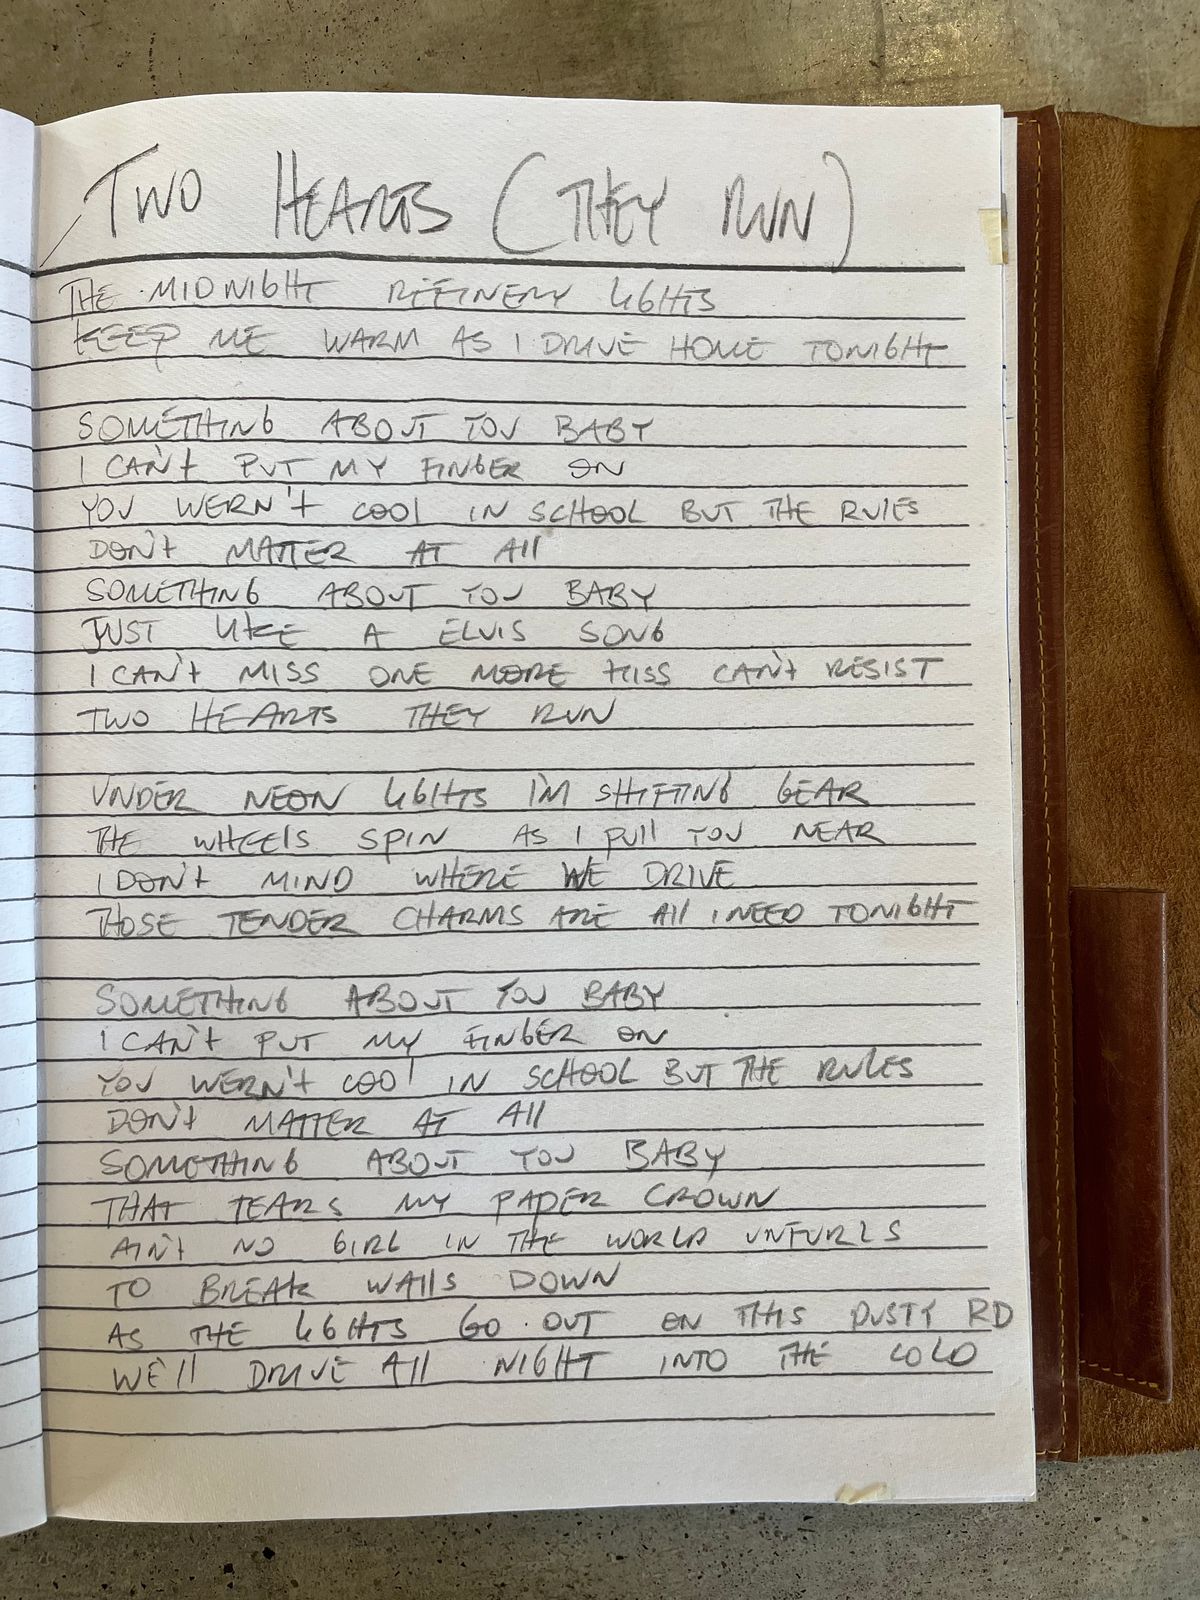 TWO HEARTS (THEY RUN)
THE MIDNIGHT REFINERY LIGHTS
KEEP ME WARM AS I DRIVE HOME TONIGHT
SOMETHING ABOUT YOU BABY
I CAN'T PUT MY FINGER ON
YOU WERN'T COOL IN SCHOOL BUT THE RULES
DON'T MATTER AT ALL
SOMETHING ABOUT YOU BABY
JUST LIKE A ELVIS SONG
I CAN'T MISS ONE MORE KISS CAN'T RESIST
TWO HEARTS THEY RUN
UNDER NEON LIGHTS I'M SHIFTING GEAR
THE WHEELS SPIN AS I PULL YOU NEAR
I DON'T MIND WHERE WE DRIVE
THOSE TENDER CHARMS ARE ALL I NEED TONIGHT
SOMETHING ABOUT YOU BABY
I CAN'T PUT MY FINGER ON
YOU WERN'T COOL IN SCHOOL BUT THE RULES
DON'T MATTER AT ALL
SOMETHING ABOUT YOU BABY
THAT TEARS MY PAPER CROWN
AIN'T NO GIRL IN THE WORLD UNFURLS
TO BREAK WALLS DOWN
AS THE LIGHTS GO OUT ON THIS DUSTY RD
WE'LL DRIVE ALL NIGHT INTO THE COLD